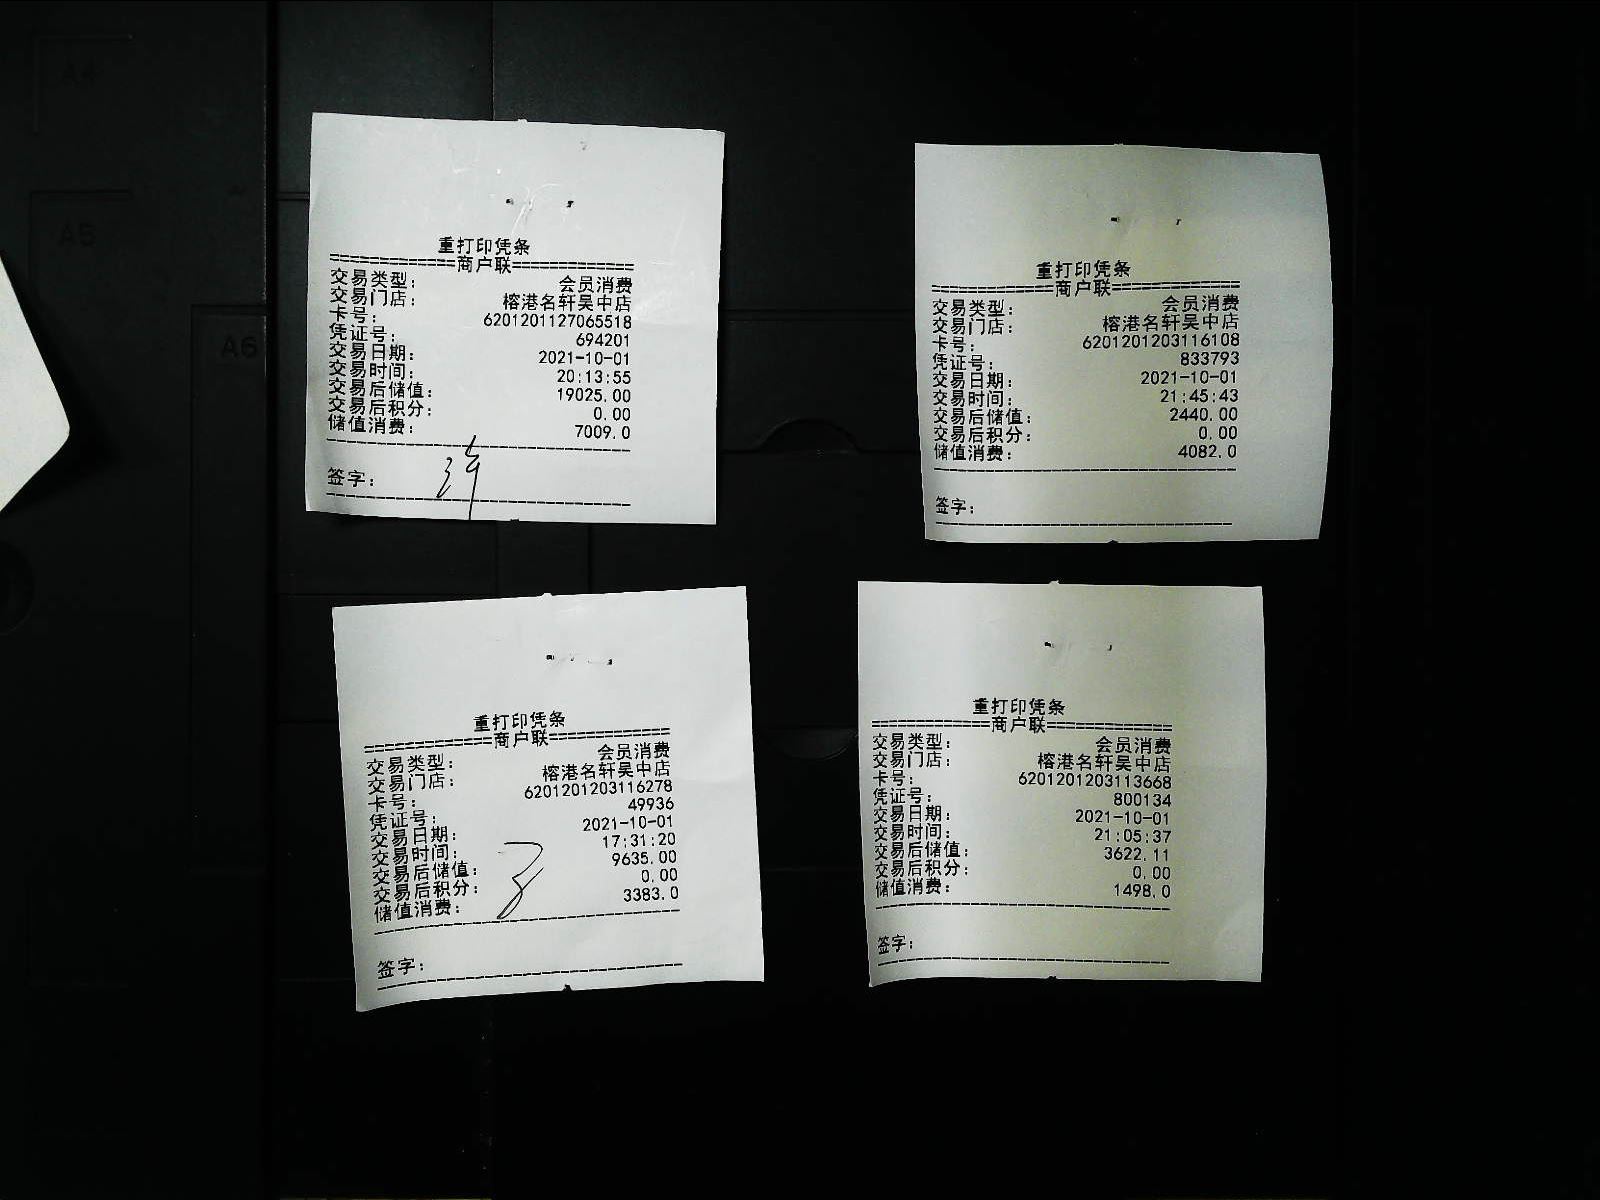 A4
A5
A6
重打印凭条
==============商户联==============
交易类型： 会员消费
交易门店： 榕港名轩吴中店
卡号： 6201201127065518
凭证号： 694201
交易日期： 2021-10-01
交易时间： 20:13:55
交易后储值： 19025.00
交易后积分： 0.00
储值消费： 7009.0
签字：
重打印凭条
==============商户联==============
交易类型： 会员消费
交易门店： 榕港名轩吴中店
卡号： 6201201203116108
凭证号： 833793
交易日期： 2021-10-01
交易时间： 21:45:43
交易后储值： 2440.00
交易后积分： 0.00
储值消费： 4082.0
签字：
重打印凭条
==============商户联==============
交易类型： 会员消费
交易门店： 榕港名轩吴中店
卡号： 6201201203116278
凭证号： 49936
交易日期： 2021-10-01
交易时间： 17:31:20
交易后储值： 9635.00
交易后积分： 0.00
储值消费： 3383.0
签字：
重打印凭条
==============商户联==============
交易类型： 会员消费
交易门店： 榕港名轩吴中店
卡号： 6201201203113668
凭证号： 800134
交易日期： 2021-10-01
交易时间： 21:05:37
交易后储值： 3622.11
交易后积分： 0.00
储值消费： 1498.0
签字：